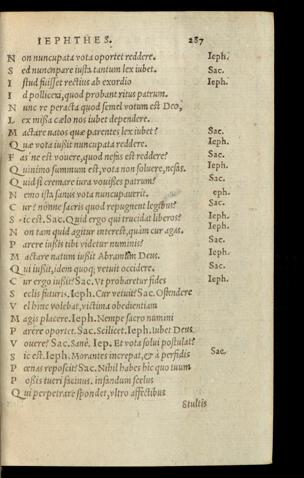 IEPHTHES. 287
N on nuncupata vota oportet reddere. Ieph.
S ed nunc non pare iusta tantum lex iubet. Sac.
I stud fuisset rectius ab exordio Ieph.
I d polliceri, quod probant ritus patrum.
N unc re peracta quod semel votum est Deo,
L ex missa cælo nos iubet dependere.
M actare natos quæ parentes lex iubet? Sac.
Q uæ vota iussit nuncupata reddere. Ieph.
F as ne est vouere, quod nefas est reddere? Sac.
Q uinimo summum est, vota non soluere, nefas. Ieph.
Q uid si cremare iura vouisses patrum? Sac.
N emo ista sanus vota nuncupauerit. eph.
C ur? nónne sacris quod repugnent legibus? Sac.
S ic est. Sac. Quid ergo qui trucidat liberos? Ieph.
N on tam quid agitur interest, quàm cur agas. Ieph.
P arere iussis tibi videtur numinis? Sac.
M actare natum iussit Abramum Deus. Ieph.
Q ui iussit, idem quoq; vetuit occidere. Sac.
C ur ergo iussit? Sac. Vt probaretur fides Ieph.
S eclis futuris. Ieph. Cur vetuit? Sac. Ostendere
V el hinc volebat, victima obedientiam
M agis placere. Ieph. Nempe sacro numini
P arere oportet. Sac. Scilicet. Ieph. Iubet Deus
V ouere? Sac. Sanè. Iep. Et vota solui postulat?
S ic est. Ieph. Morantes increpat, & à perfidis Sac.
P œnas reposcit? Sac. Nihil habes hic quo tuum
P ossis tueri facinus. infandum scelus
Q ui perpetrare spondet, vltro affectibus
Stultis